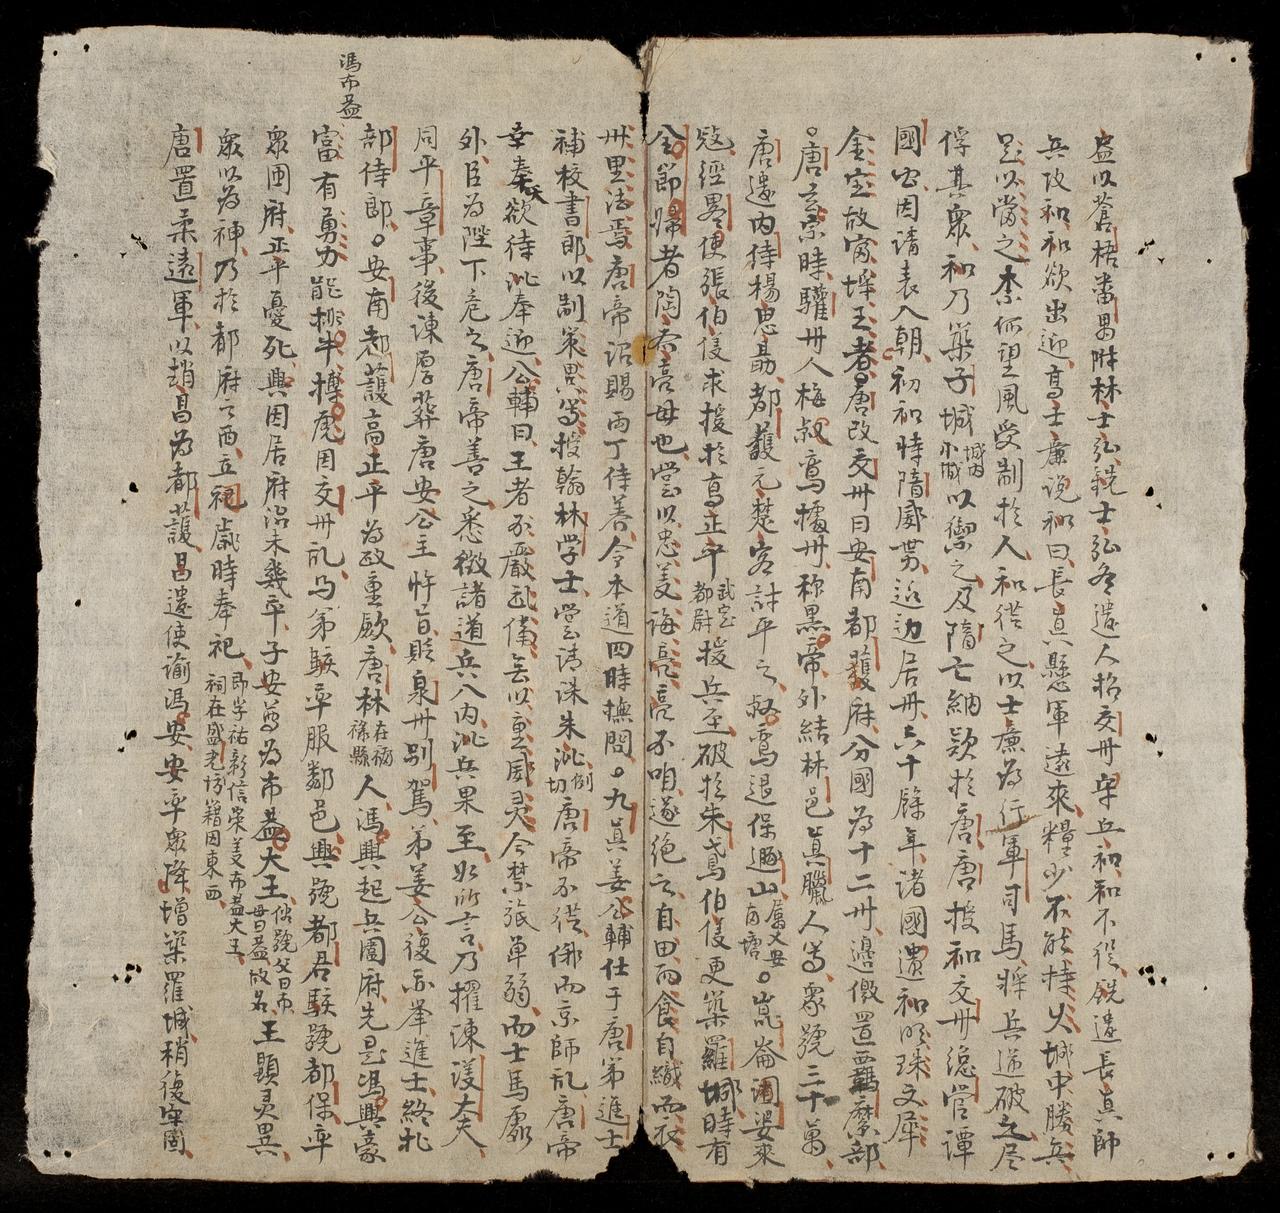 盎以蒼梧番禺附林士弘銑士弘各遣人招交州牢丘和和不從銑遣長真師
兵攻和和欲出迎高士廉說和曰長真懸軍遠來糧少不能持久城中勝兵
足以當之柰何望風受制於人和從之以士廉為行軍司馬將兵逆破之尽
俘其衆和乃築子城城內小城以禦之及隋亡納欵於唐唐授和交州總管譚
國公因請表入朝初和時隋威世男近边居州六十餘年諸國遺和明珠文犀
金宝故富埒王者唐改交州曰安南都護府分國為十二州邊徼置羈縻部
唐玄宗時驩州人梅叔鸞據州称黒帝外結林邑真臘人馬衆號三十萬
唐遣内侍楊思勗都護元楚客討平之叔鸞退保遯山屬丈母南塘崑崙闍婆來
冦經畧使張伯儀求援於高正平武定都尉援兵至破於朱鳶伯儀更築羅城時有
金節歸者陶齊亮母也嘗以忠義誨亮亮不咱遂绝之自田而食自織而衣
州里法焉唐帝詔賜兩丁侍善令本道四時撫問九眞姜公輔仕于唐第進士
補校書郎以制策異等授翰林学士嘗請誅朱泚例切唐帝不從俄而京師乱唐帝
幸奉天欲待泚奉迎公輔曰王者不嚴武備無以重威灵今禁旅单弱而士馬處
外臣為陛下危之唐帝善之悉徵諸道兵入内泚兵果至如所言乃擢諫議大夫
同平章事後諫厚葬唐安公主忤旨貶泉州别駕弟姜公復亦举進士終北
部侍郎安南都護高正平為政重歛唐林在福祿縣人馮興起兵圍府先是馮興豪
馮布盎
富有勇力能排牛搏虎因交州乱与弟駭率服鄰邑興號都君駭號都保率
衆囲府正平憂死興因居府治未幾卒子安尊為布盎大王俗號父曰布母曰盎故名王顕灵異
衆以為神乃於都府之西立祀歲時奉祀即孚祐彰信崇義布盎大王祠在盛光坊籍田東西
唐置柔遠軍以趙昌為都護昌遣使諭馮安安率衆降增築羅城稍復牢固